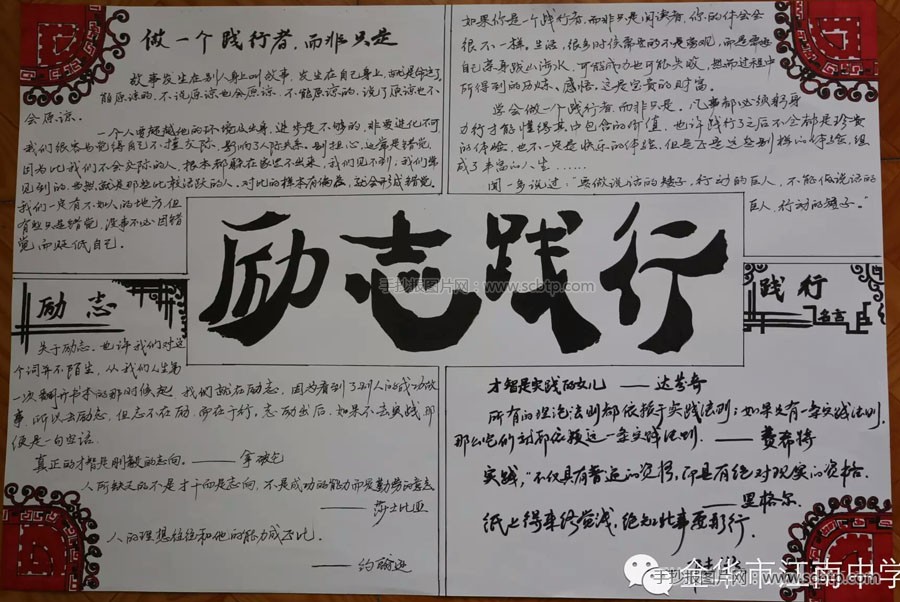 做一个践行者,而非只是
故事发生在别人身上叫故事,发生在自己身上,
能原谅的,不说原谅也会原谅,不能原谅的,说了原谅也不
会原谅。
一个人要超越他的环境及出身,进步是不够的,非要进化不可
我们很容易觉得自己不擅交际,影响了人际关系,别担心,这常是错觉
因为比我们不会交际的人,根本都躲在家里不出来,我们见不到,我们常
见到的,当然就是那些比较活跃的人,对比的样本有偏差,就会形成错觉,
我们一定有不如人的地方,但
有些只是错觉,没事不必因错
觉,而贬低自己。
如果你是一个践行者,而非只是阅读者,你的体会会
很不一样。生活,很多时候需要的不是旁观,而是需要
自己亲身跋山涉水,可能成功也可能失败,然而过程中
所得到的历练、感悟,这是宝贵的财富。
学会做一个践行者,而非只是。凡事都必须躬身
力行才能懂得其中包含的价值,也许践行了之后不会都是珍贵
的体验,也不一定是快乐的体验,但是正是这些别样的体验,组
成了丰富的人生……
闻一多说过:“要做说话的矮子,行动的巨人,不能做说话的
巨人,行动的矮子。”
励志践行
励志
关于励志,也许我们对这
个词并不陌生,从我们人生第
一次翻开书本的那时候起,我们就在励志,因为看到了别人的成功故
事,所以去励志,但志不在励,而在于行,志励出后,如果不去实践,那
便是一句空话。
真正的才智是刚毅的志向。——拿破仑
人所缺乏的不是才干而是志向,不是成功的能力而是勤劳的意志
——莎士比亚
人的理想往往和他的能力成正比。
——约翰逊
践行
名言
才智是实践的女儿 ——达芬奇
所有的理论法则都依赖于实践法则;如果只有一条实践法则,
那么它们就都依赖这一条实践法则. ——费希特
实践,“不仅具有普遍的资格,而且有绝对现实的资格。
——黑格尔
纸上得来终觉浅,绝知此事要躬行。
手抄报图片网 - www.scbtp.com
手抄报图片网 - www.scbtp.com
金华市江南中学